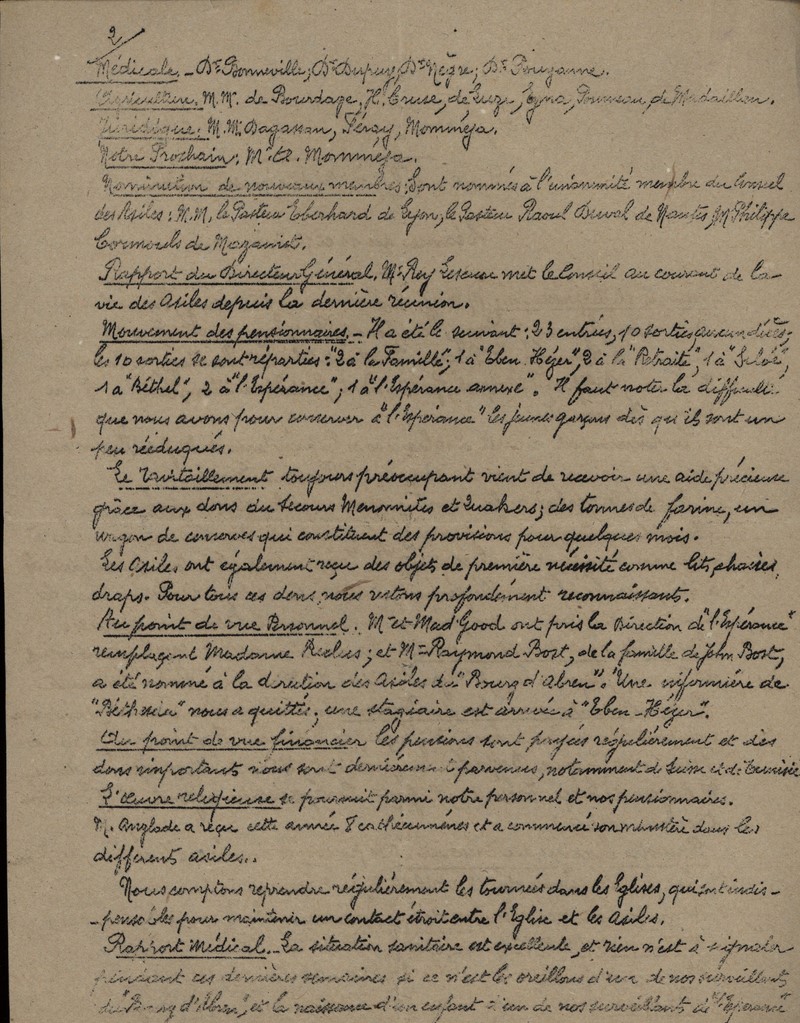 2
Médicale - Dr Bonneville; Dr Dupuy; Dr Nègre; Dr Pouzanne.
Agriculture. M.M. de Bourdage, H. Cruse, de Luze, Eyma, Pommeau, de Madaillan.
Juridique. M.M. Dagassan, Momméja.
Notre Prochain: Mr Momméja.
Nomination de nouveaux membres: Sont nommés à l'unanimité membre du Conseil
des Asiles: M.M. le Pasteur Eberhard de Lyon, le Pasteur Raoul Duval de Nantes, M Philippe
Cormouls de Mazamet.
Rapport du Directeur Général. Mr Rey Lescure met le Conseil au courant de la
vie des Asiles depuis la dernière réunion.
Mouvement des pensionnaires. - Il a été le suivant: 23 entrées, 10 sorties aucun décès;
les 10 sorties se sont réparties: "2 à la Famille", 1 à "Eben Hézer", 2 à la "Retraite", 1 à "Siloé",
1 à "Béthel", 2 à "l'Espérance"; 1 à "l'Espérance annexe". Il faut noter la difficulté
que nous avons pour conserver à "l'Espérance" les jeunes garçons dès qu'ils sont un
peu rééduqués.
Le ravitaillement toujours préoccupant vient de recevoir une aide précieuse
grâce aux dons du Secours Menonnites et Quakers; des tonnes de farine, un
wagon de conserves qui constituent des provisions pour quelques mois.
Les Asiles ont également reçu des objets de première nécessité comme lits, chaises,
draps. Pour tous ces dons, nous restons profondément reconnaissants.
Au point de vue Personnel. Mr et Mad Good ont pris la Direction de "l'Espérance"
remplaçant Madame Reclus; et Mr Raymond Bost, de la famille de John Bost,
a été nommé à la direction des Asiles du "Bourg d'Abren". Une infirmière de
"Béthesda" nous a quittés; une stagiaire est arrivée à "Eben-Hézer".
Au point de vue financier les pensions sont payées régulièrement et des
dons importants nous sont dernièrement parvenus, notamment de Suisse et de Tunisie
L'œuvre religieuse se poursuit parmi notre personnel et nos pensionnaires.
M. Anglade a reçu cette année 8 cathécumènes et a commencé son ministère dans les
différents asiles..
Nous comptons reprendre régulièrement les tournées dans les Eglises, qui sont indis-
-pensables pour maintenir un contact étroit entre l'Eglise et les Asiles.
Rapport Médical. La situation sanitaire est excellente, et rien n'est à signaler
pendant ces dernières semaines si ce n'est les oreillons d'un de nos surveillants
du "Bourg d'Abren", et la naissance d'un enfant d'un de nos surveillants de "l'Espérance"